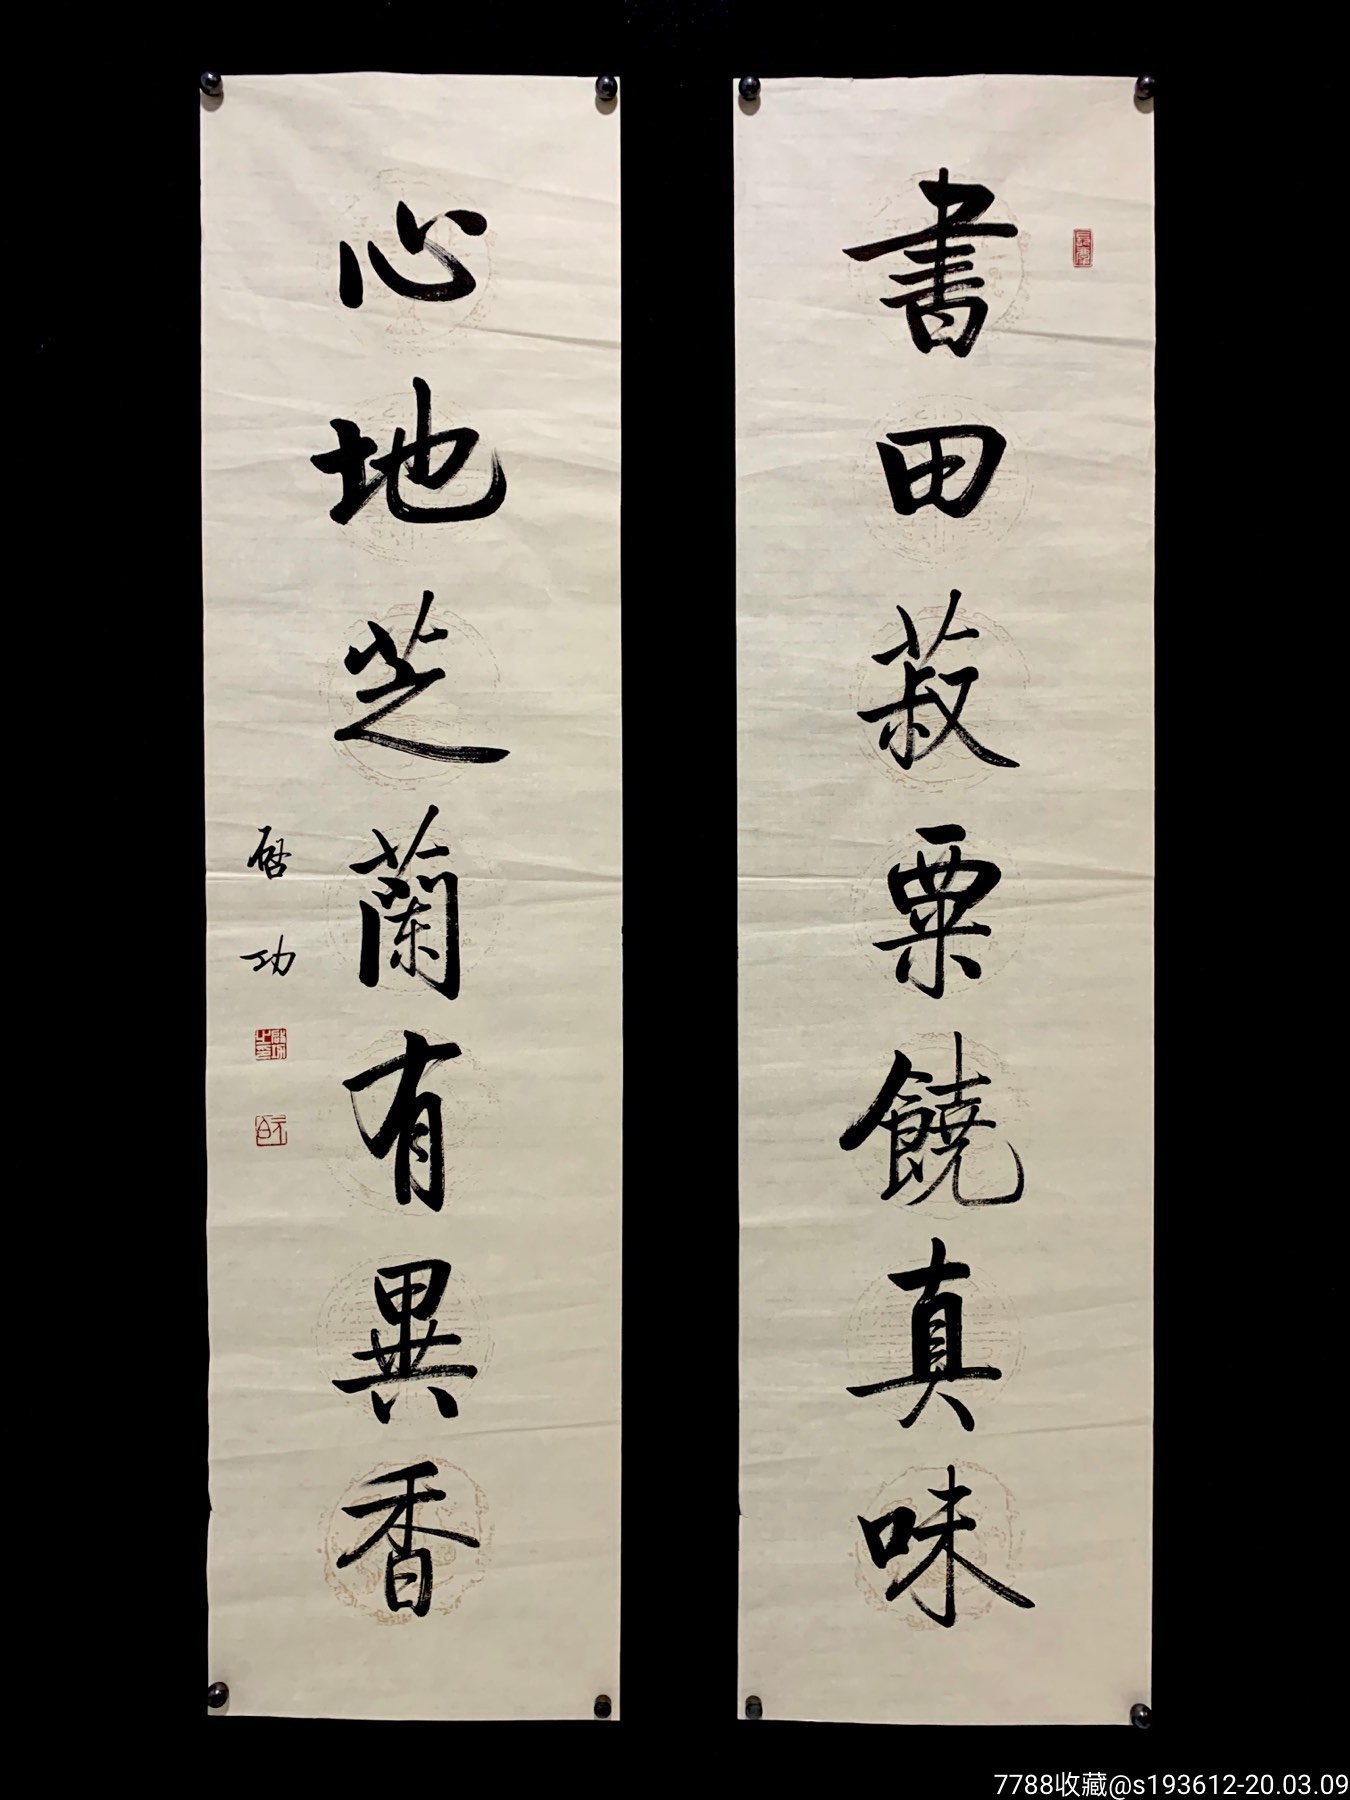 書田菽粟饒真味
心地芝蘭有異香
啓功
啓功之印
元白
7788收藏@s193612-20.03.09